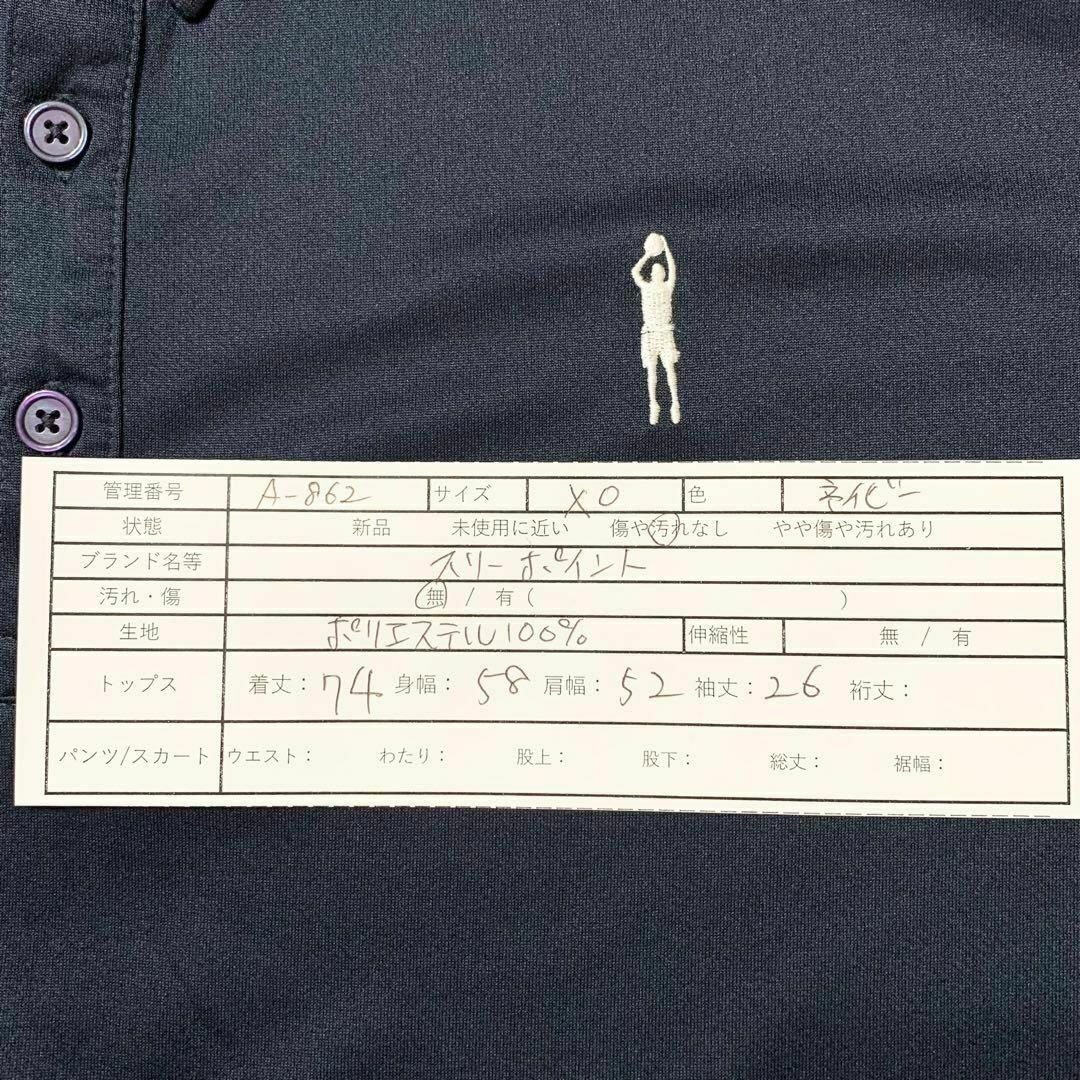 管理番号 A-862 サイズ XO 色 ネイビー
状態 新品 未使用に近い 傷や汚れなし やや傷や汚れあり
ブランド名等 スリーポイント
汚れ・傷 無 / 有 ( )
生地 ポリエステル100% 伸縮性 無 / 有
トップス 着丈: 74 身幅: 58 肩幅: 52 袖丈: 26 裄丈:
パンツ/スカート ウエスト: わたり: 股上: 股下: 総丈: 裾幅: